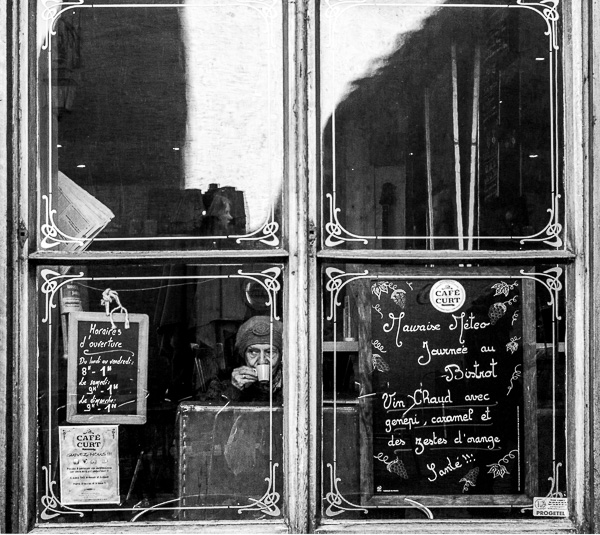 Horaires
d'ouverture
Du lundi au vendredi,
8H - 1H
Le samedi,
9H - 1H
Le dimanche,
9H - 1H
CAFÉ
CURT
CAFÉ
CURT
Mauvaise Méteo
Journée au
Bistrot
Vin Chaud avec
genepi, caramel et
des zestes d'orange
Santé !!!
PROGETEL